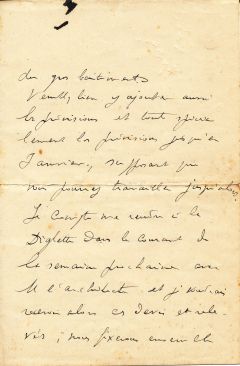 des gros bâtiments
Veuillez bien y ajouter aussi
les prévisions et tout spécia
lement les prévisions jusqu'en
Janvier, supposant que
vous pourrez travailler jusqu'alors.
Je compte me rendre à la
dans le courant de
la semaine prochaine avec
M l'architecte et je voudrais
recevoir alors ces devis et rele-
vés ; nous fixerons ensemble